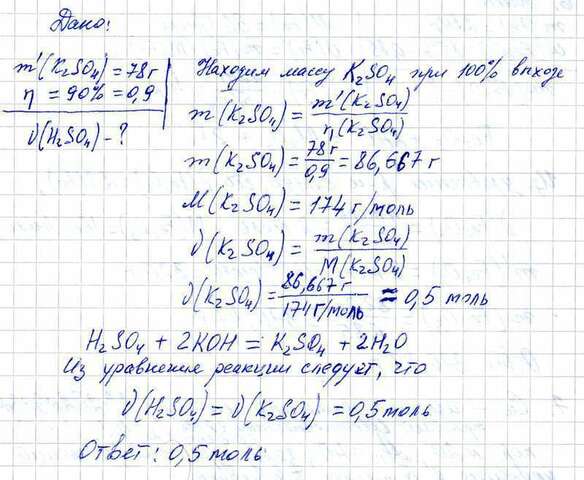 Дано:
m'(K₂SO₄) = 78 г
η = 90% = 0,9
ν(H₂SO₄) - ?
Находим массу K₂SO₄ при 100% выходе
m(K₂SO₄) = m'(K₂SO₄) / η(K₂SO₄)
m(K₂SO₄) = 78 г / 0,9 = 86,667 г
M(K₂SO₄) = 174 г/моль
ν(K₂SO₄) = m(K₂SO₄) / M(K₂SO₄)
ν(K₂SO₄) = 86,667 г / 174 г/моль ≈ 0,5 моль
H₂SO₄ + 2KOH = K₂SO₄ + 2H₂O
Из уравнения реакции следует, что
ν(H₂SO₄) = ν(K₂SO₄) = 0,5 моль
Ответ: 0,5 моль